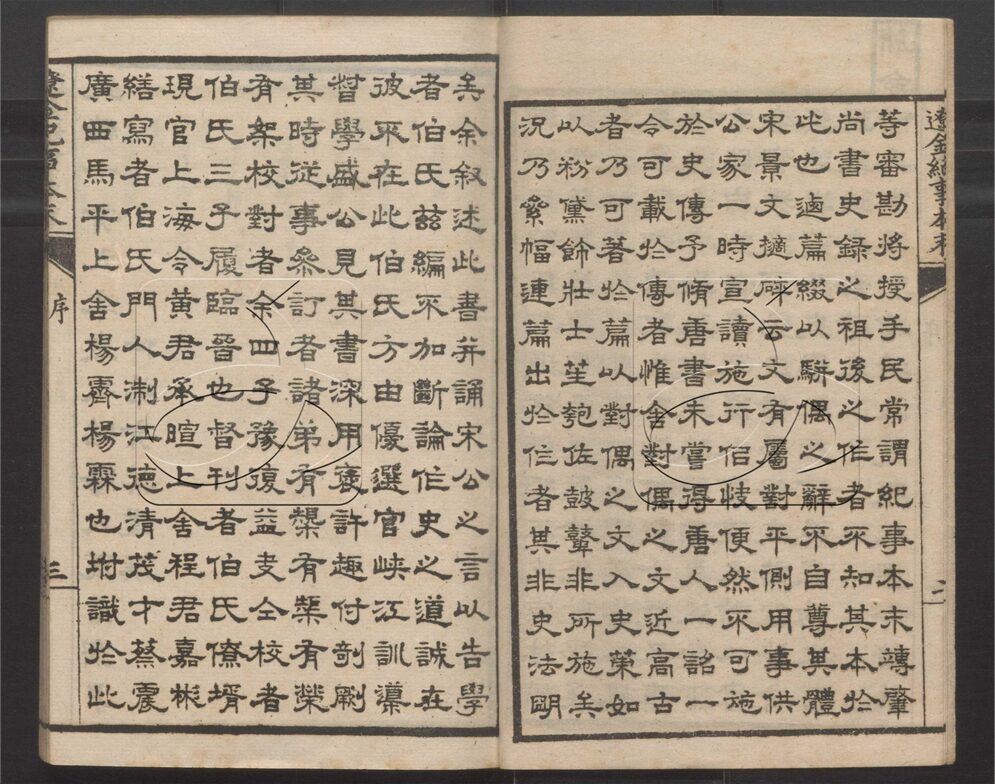 遼金紀事本末
二
等審勘將授手民常謂紀事本末竱肇
尚書史録之祖後之作者不知其本於
此也迺篇綴以駢偶之辭不自尊其體
宋景文擿碎云文有屬對平側用事供
公家一時宣讀施行佀便然不可施
於史傳予脩唐書未嘗得唐人一詔一
令可載於傳者惟舍對偶之文近高古
者乃可著於篇以對偶之文入史策如
以粉黛飾壯士笙匏佐鼓鼙非所施矣
況乃絫幅連篇出於作者其非史法明
矣余叙述此書幷誦宋公之言以告學
者伯氏茲編不加斷論作史之道誠在
彼不在此伯氏方由優選官峽江訓導
督學盛公見其書深用褒許趣付剞劂
其時從事參訂者諸弟有槼有榘有榮
有絫校對者余四子豫復益仝校者
伯氏三子履臨晉也督刊者伯氏僚壻
現官上海令黃君承暄上舍程君嘉彬
繕寫者伯氏門人制江德清茂才蔡震
廣西馬平上舍楊霽楊霖也坿識於此
遼金紀事本末
序
三